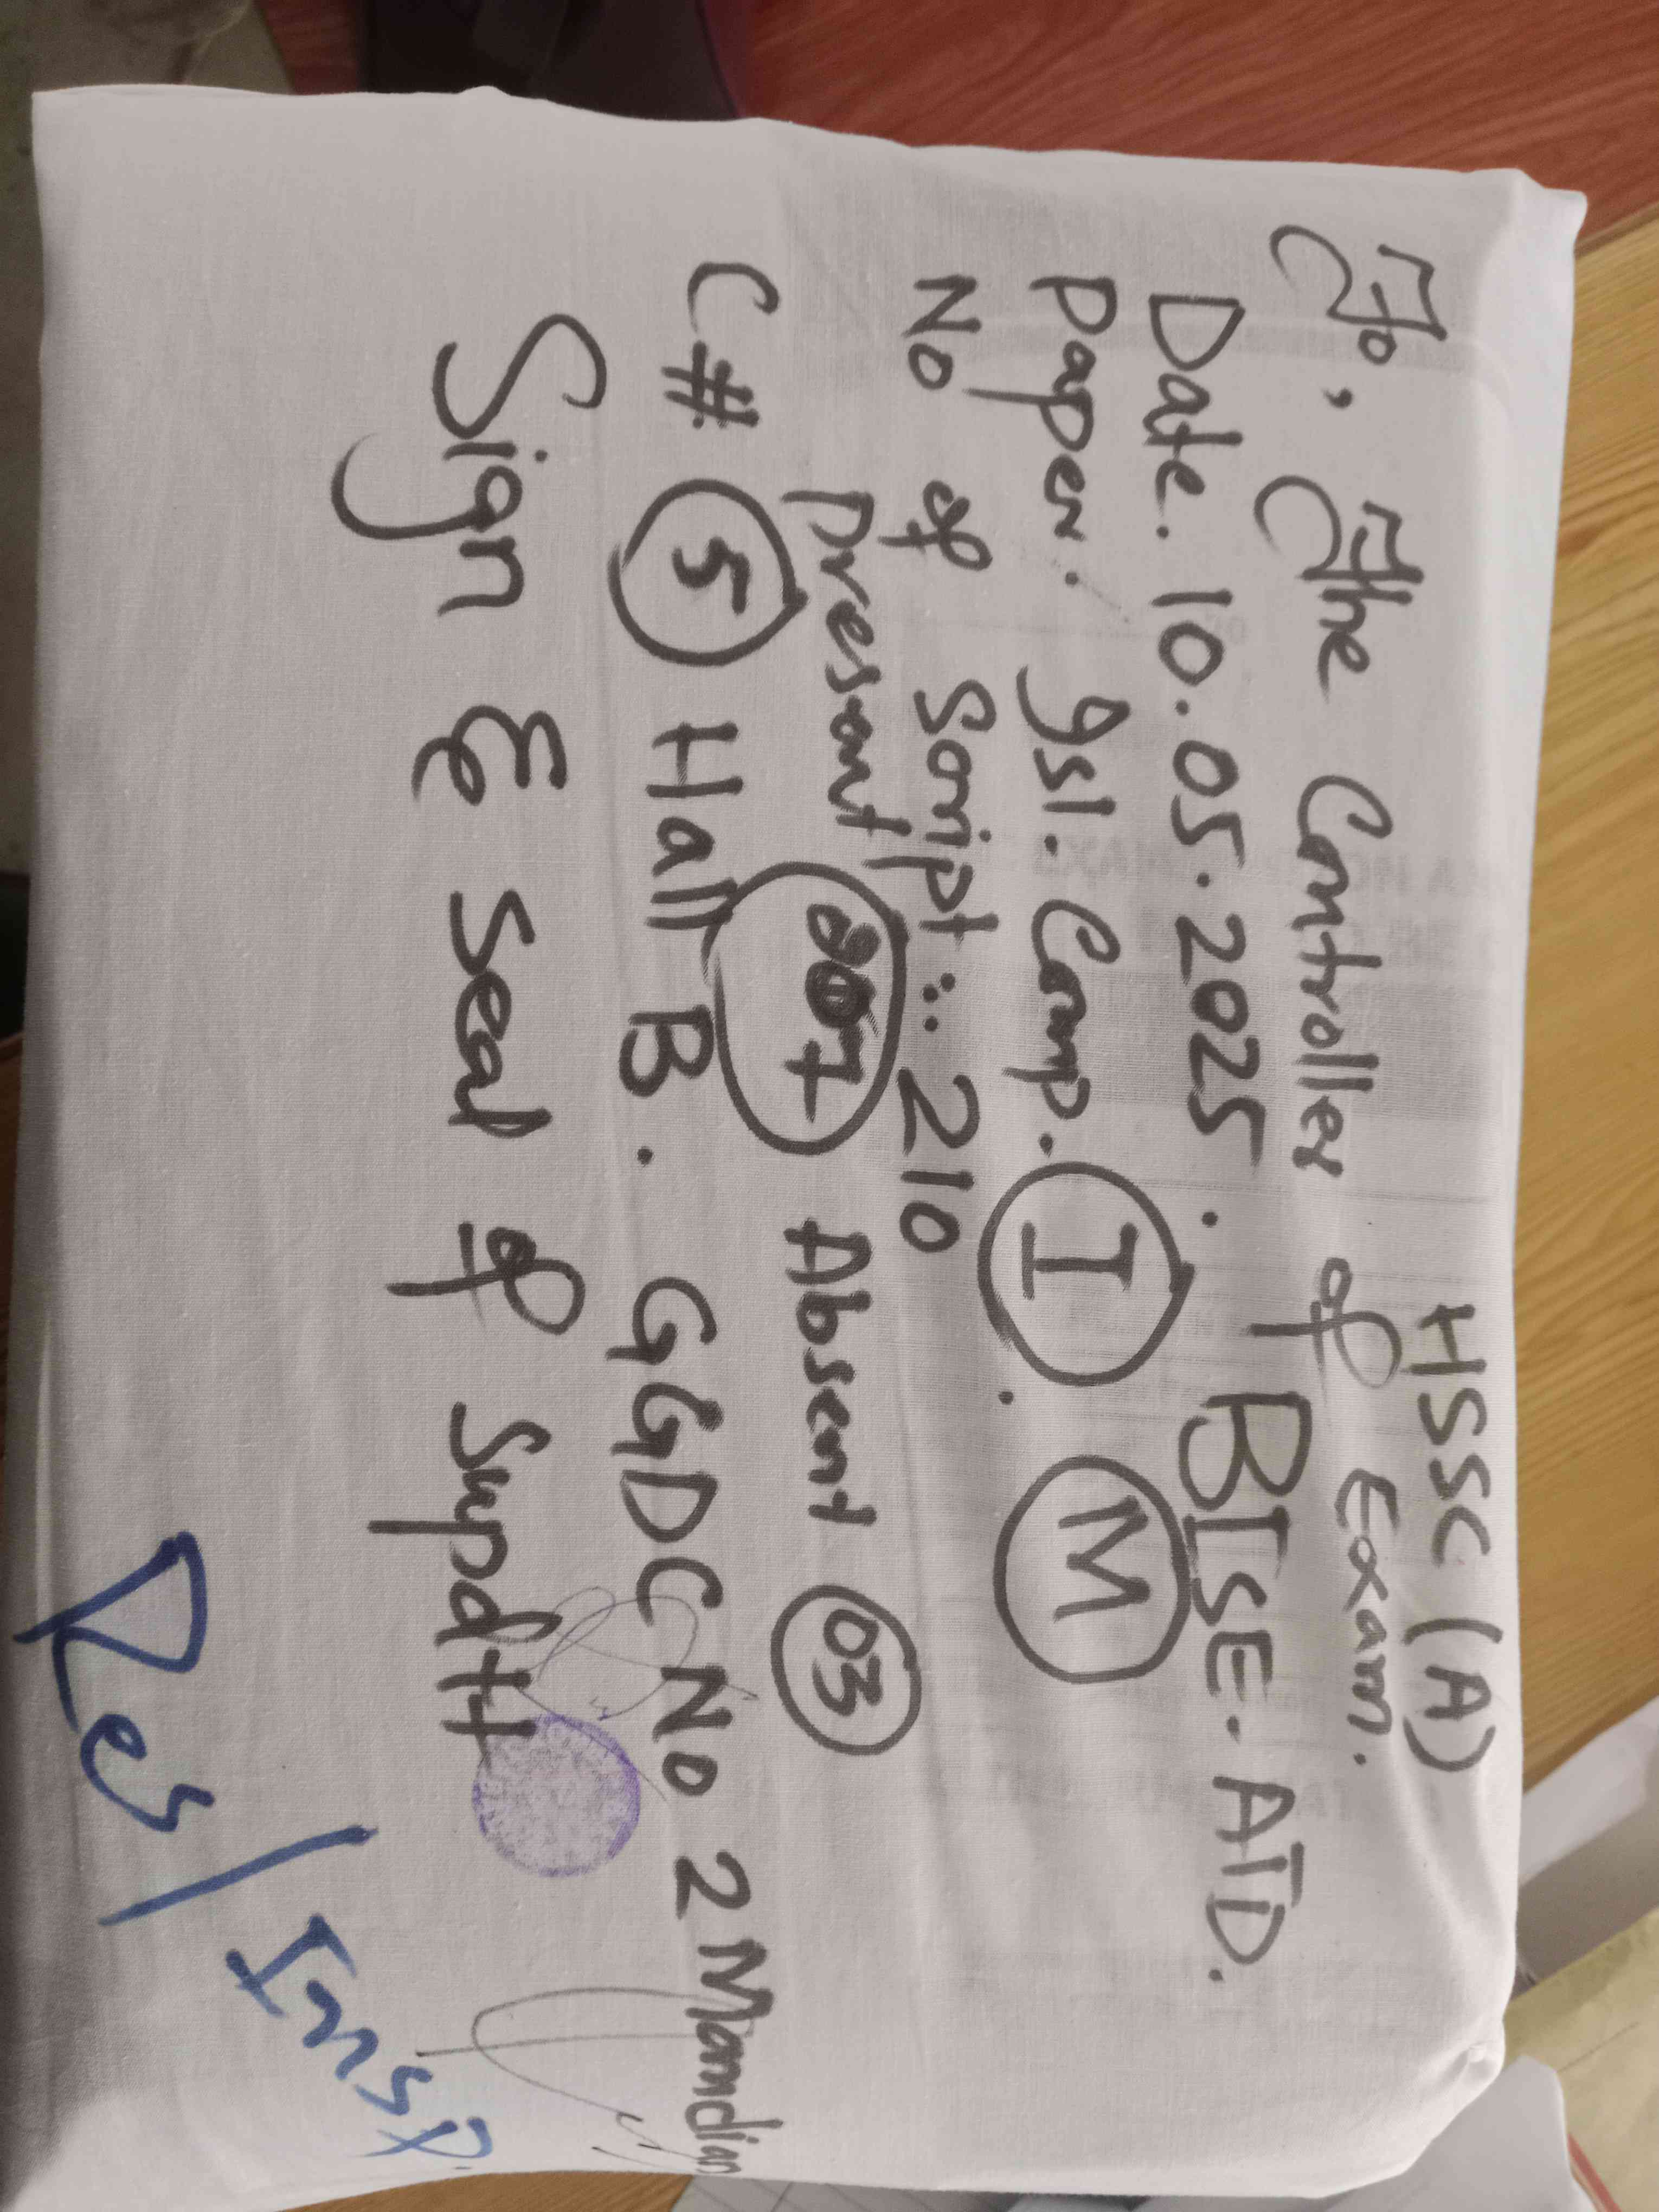 HSSC (A)
To, The Controller of Exam.
BISE. ATD.
Date. 10.05.2025.
Paper. Isl. Comp. I. M
No of Script:. 210
present 207 Absent 03
C# 5 Hall B. GGDC No 2 Mandian
Sign & Seal of Supdtt
Res/Insp.